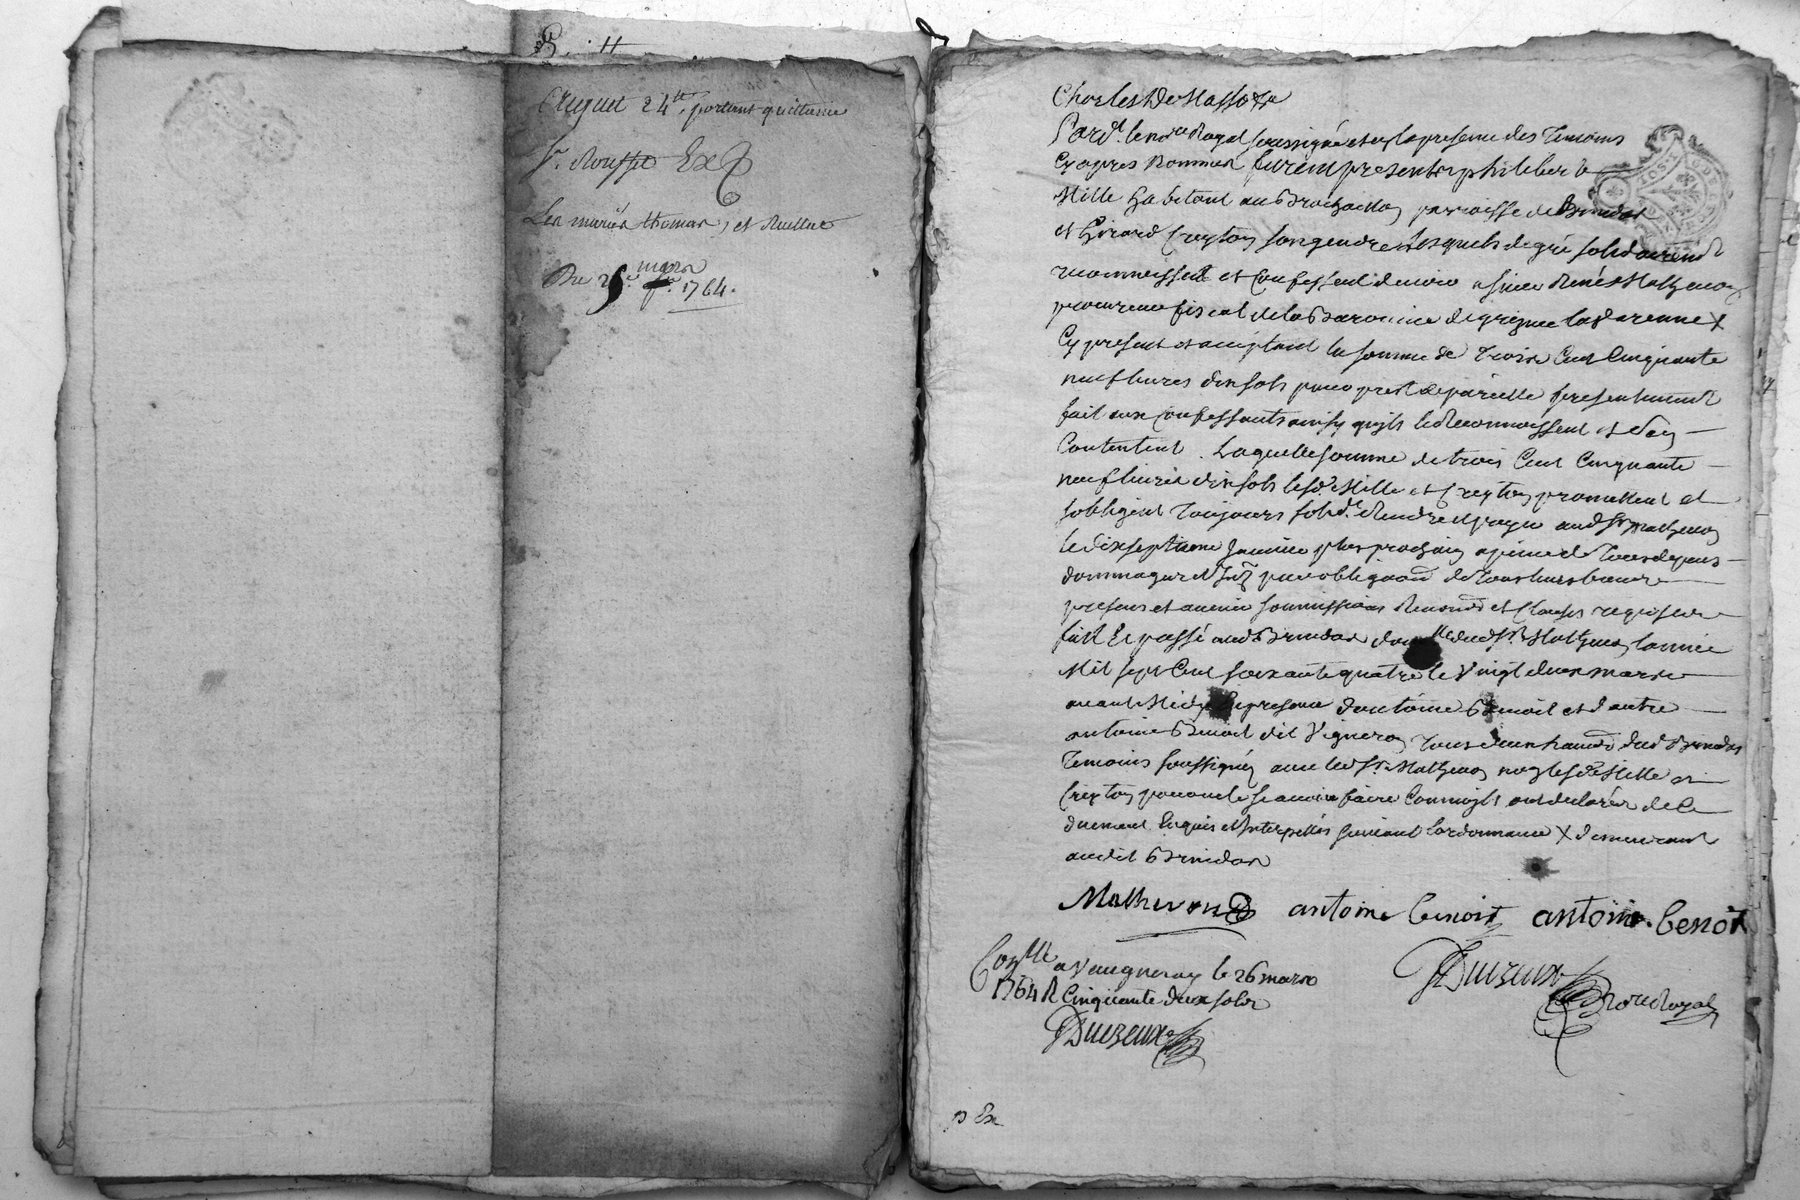 acquit 24tt. portant quittance
Sr. Rousset Ex
Les mariés thomas, et
Du 25e mars 1764.
Par dt. le nore Royal soussigné et en la presence des Temoins
Cy apres Nommés furent presents philibert
Mille habitant au parroisse de Brindas
et Girard Creyton son gendre Lesquels de gré solidairement
reconnoissent et Confessent devoir a sieur Matheron
procureur fiscal de la Baronnie de la Varenne X
Cy present et acceptant la somme de Trois Cent Cinquante
neuf livres dix sols pour prest de pareille presentement
fait aux Confessants ainsy quils le Reconnoissent et sen
Contentent. Laquelle somme de trois Cent Cinquante
neuf livres dix sols lesd. Mille et Creyton promettent et
sobligent Toujours solid. Rendre et payer aud. Sr. Matheron
le dix septieme Janvier plus prochain a peine de Tous depens
dommages et par obligaon de Tous leurs biens
presens et avenir soumissions Renons et Clauses requises
fait et passé aud. Brindas dud. Sr. Matheron lannée
Mil sept Cent soixante quatre le Vingt deux mars
avant Midy presence dantoine Benoit et dautre
antoine Benoit dit Vigneron Tous deux dud. Brindas
Temoins soussignés avec led. Sr. Matheron non lesd. Mille et
Creyton pour ne le scavoir faire Comme ils ont declarés de ce
duement Enquis et Interpellés suivant lordonnance X demeurant
audit Brindas
Matheron antoine benoit antoine benoit
Conlle a Vaugneray le 26 mars
1764 R Cinquante deux sols
nore Royal